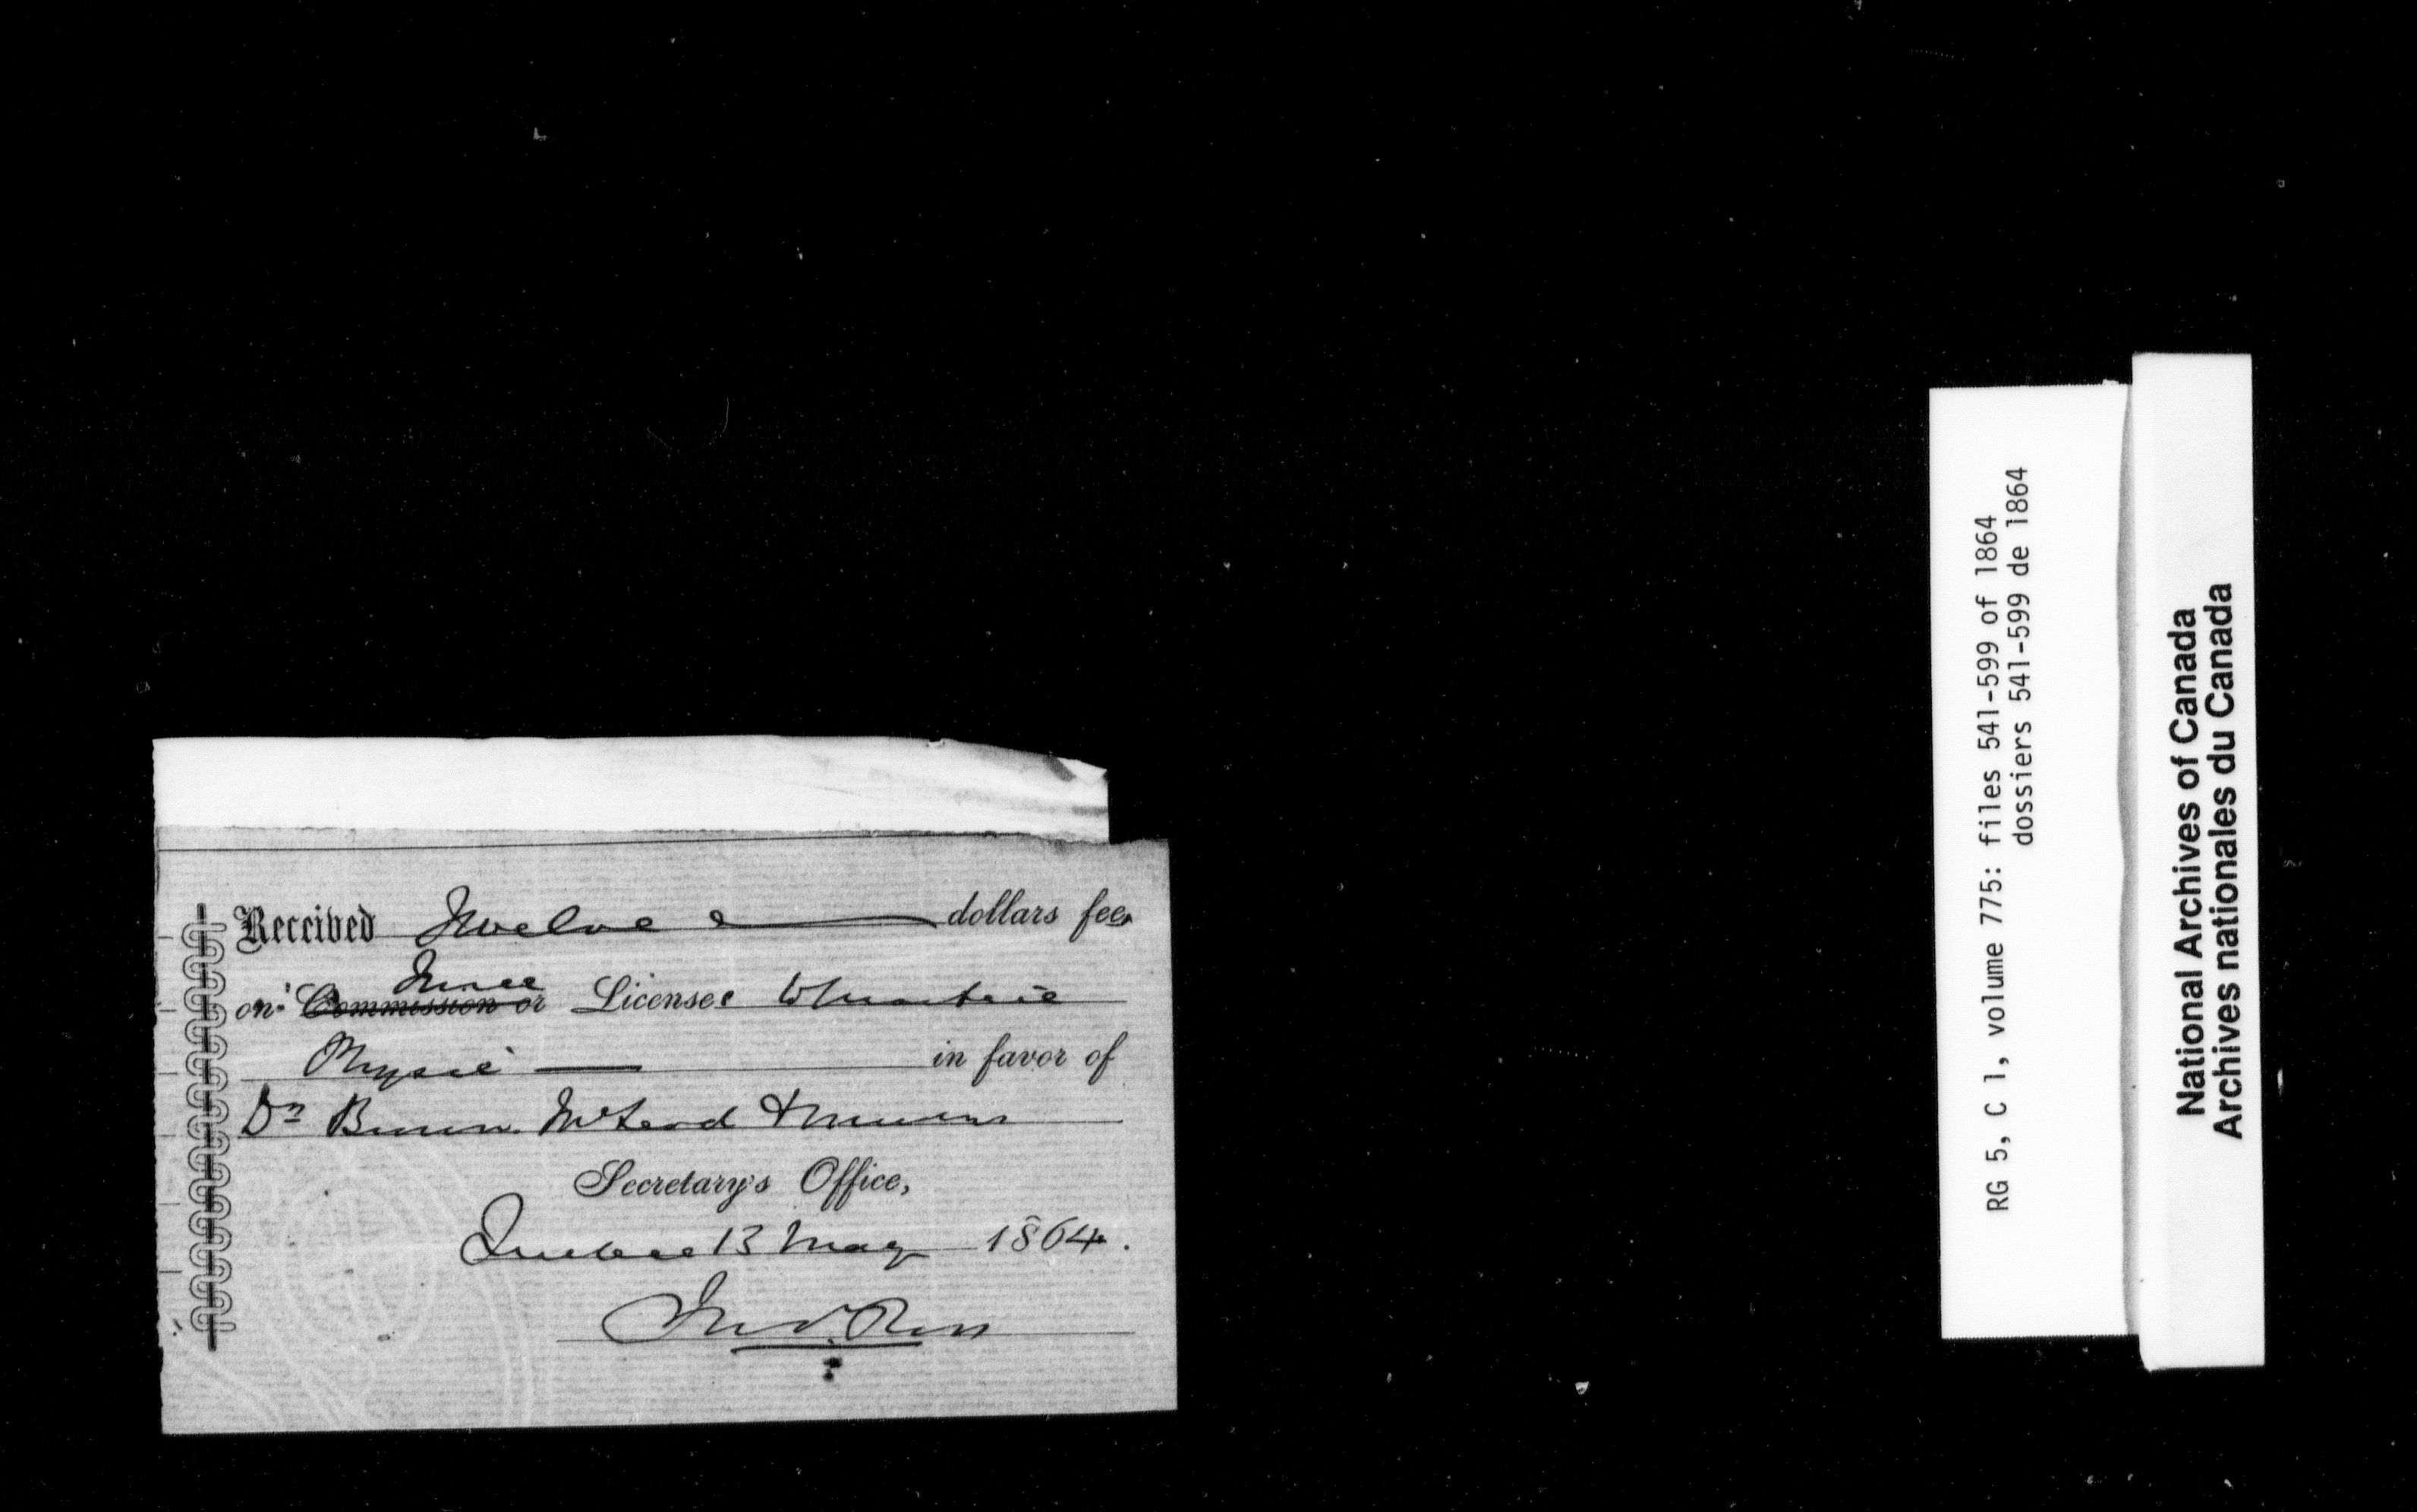 Received Twelve dollars fees
on Three Commission or Licenses to Practice
Physic in favor of
Drs McLeod &
Secretary's Office,
Quebec 13 May 1864.
Ross
RG 5, C 1, volume 775: files 541-599 of 1864
dossiers 541-599 de 1864
National Archives of Canada
Archives nationales du Canada